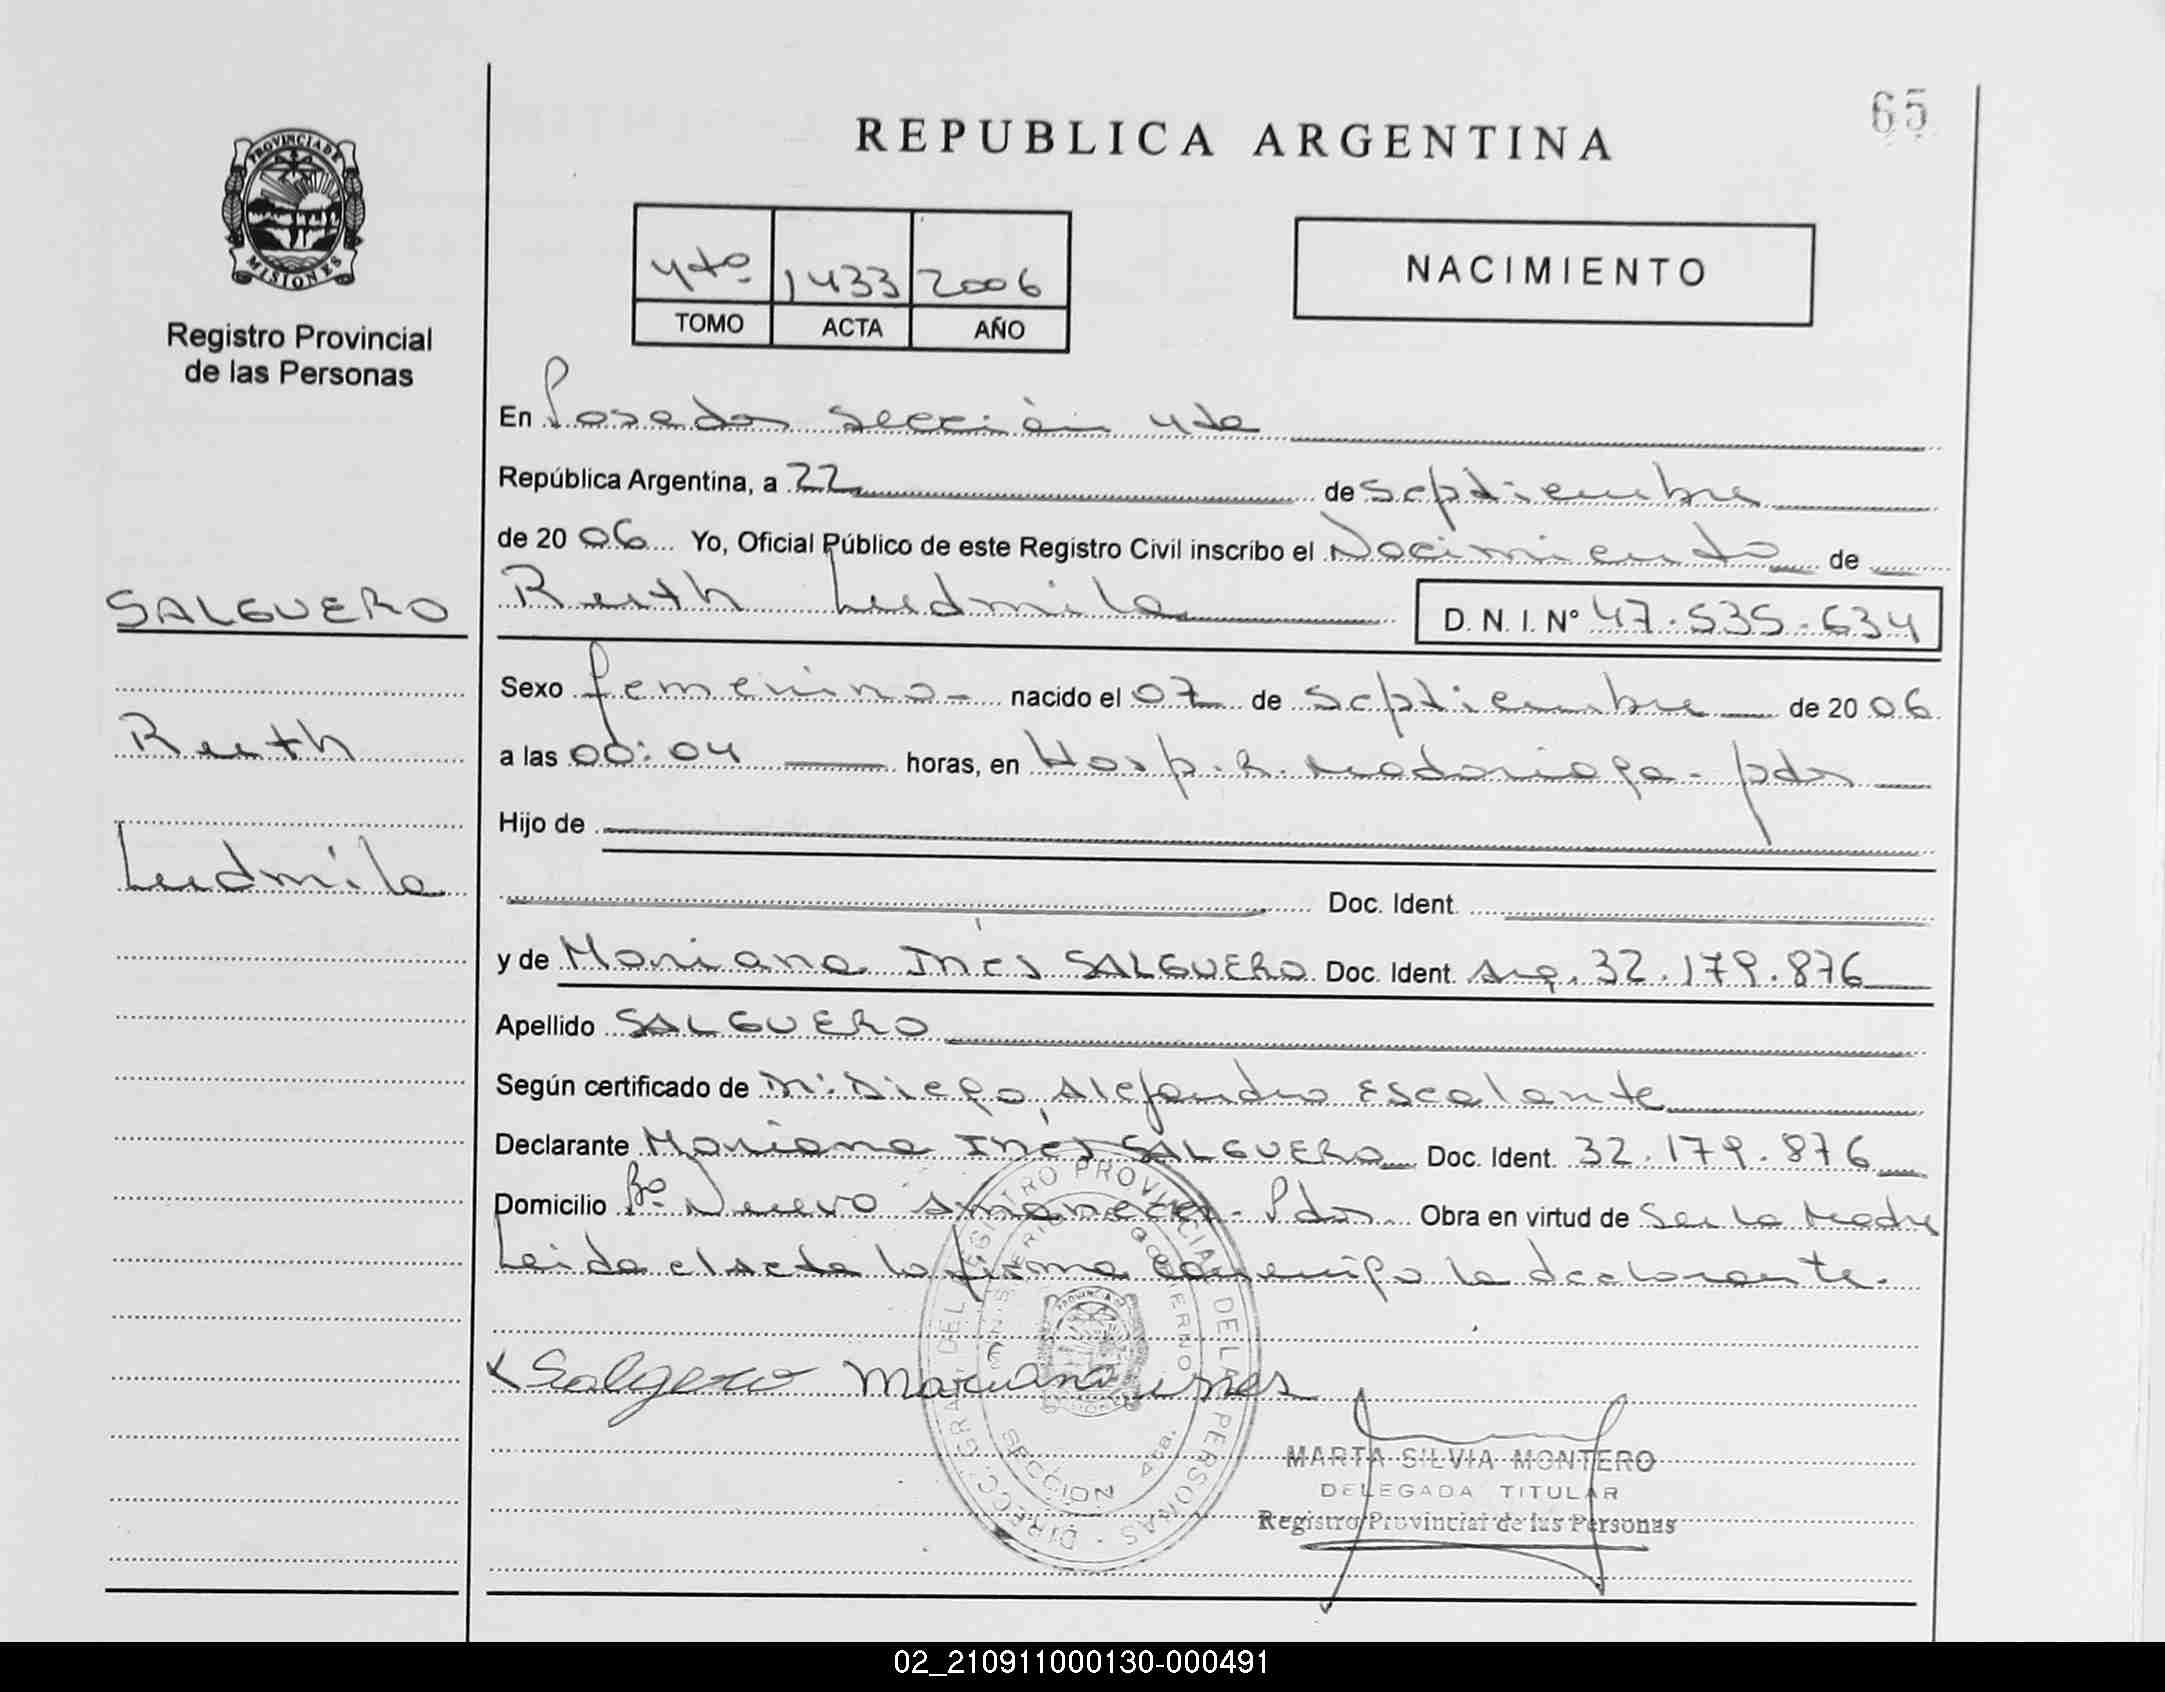 65
REPUBLICA ARGENTINA
PROVINCIA DE
MISIONES
Registro Provincial
de las Personas
4to 1433 2006
TOMO ACTA AÑO
NACIMIENTO
En Posadas sección 4ta
República Argentina, a 22 de Septiembre
de 2006 Yo, Oficial Público de este Registro Civil inscribo el Nacimiento de
SALGUERO
Ruth Ludmila D. N. I. Nº 47.535.634
Sexo femenino - nacido el 07 de Septiembre de 2006
Ruth
a las 00:04 horas, en Hosp. R. Madariaga - pdas
Hijo de
Ludmila
Doc. Ident.
y de Mariana Inés SALGUERO Doc. Ident. Arg. 32.179.876
Apellido SALGUERO
Según certificado de Dr. Diego, Alejandro Escalante
Declarante Mariana Inés SALGUERO Doc. Ident. 32.179.876
Domicilio Bº Nuevo Amanecer - Pdas Obra en virtud de Ser la Madre
Leida el acta la firma conmigo la declarante.
Salgero Mariana ines
DIRECC. GRAL. DEL REGISTRO PROVINCIAL DE LAS PERSONAS
MINISTERIO DE GOBIERNO
SECCION 4ta.
MARTA SILVIA MONTERO
DELEGADA TITULAR
Registro Provincial de las Personas
02_210911000130-000491